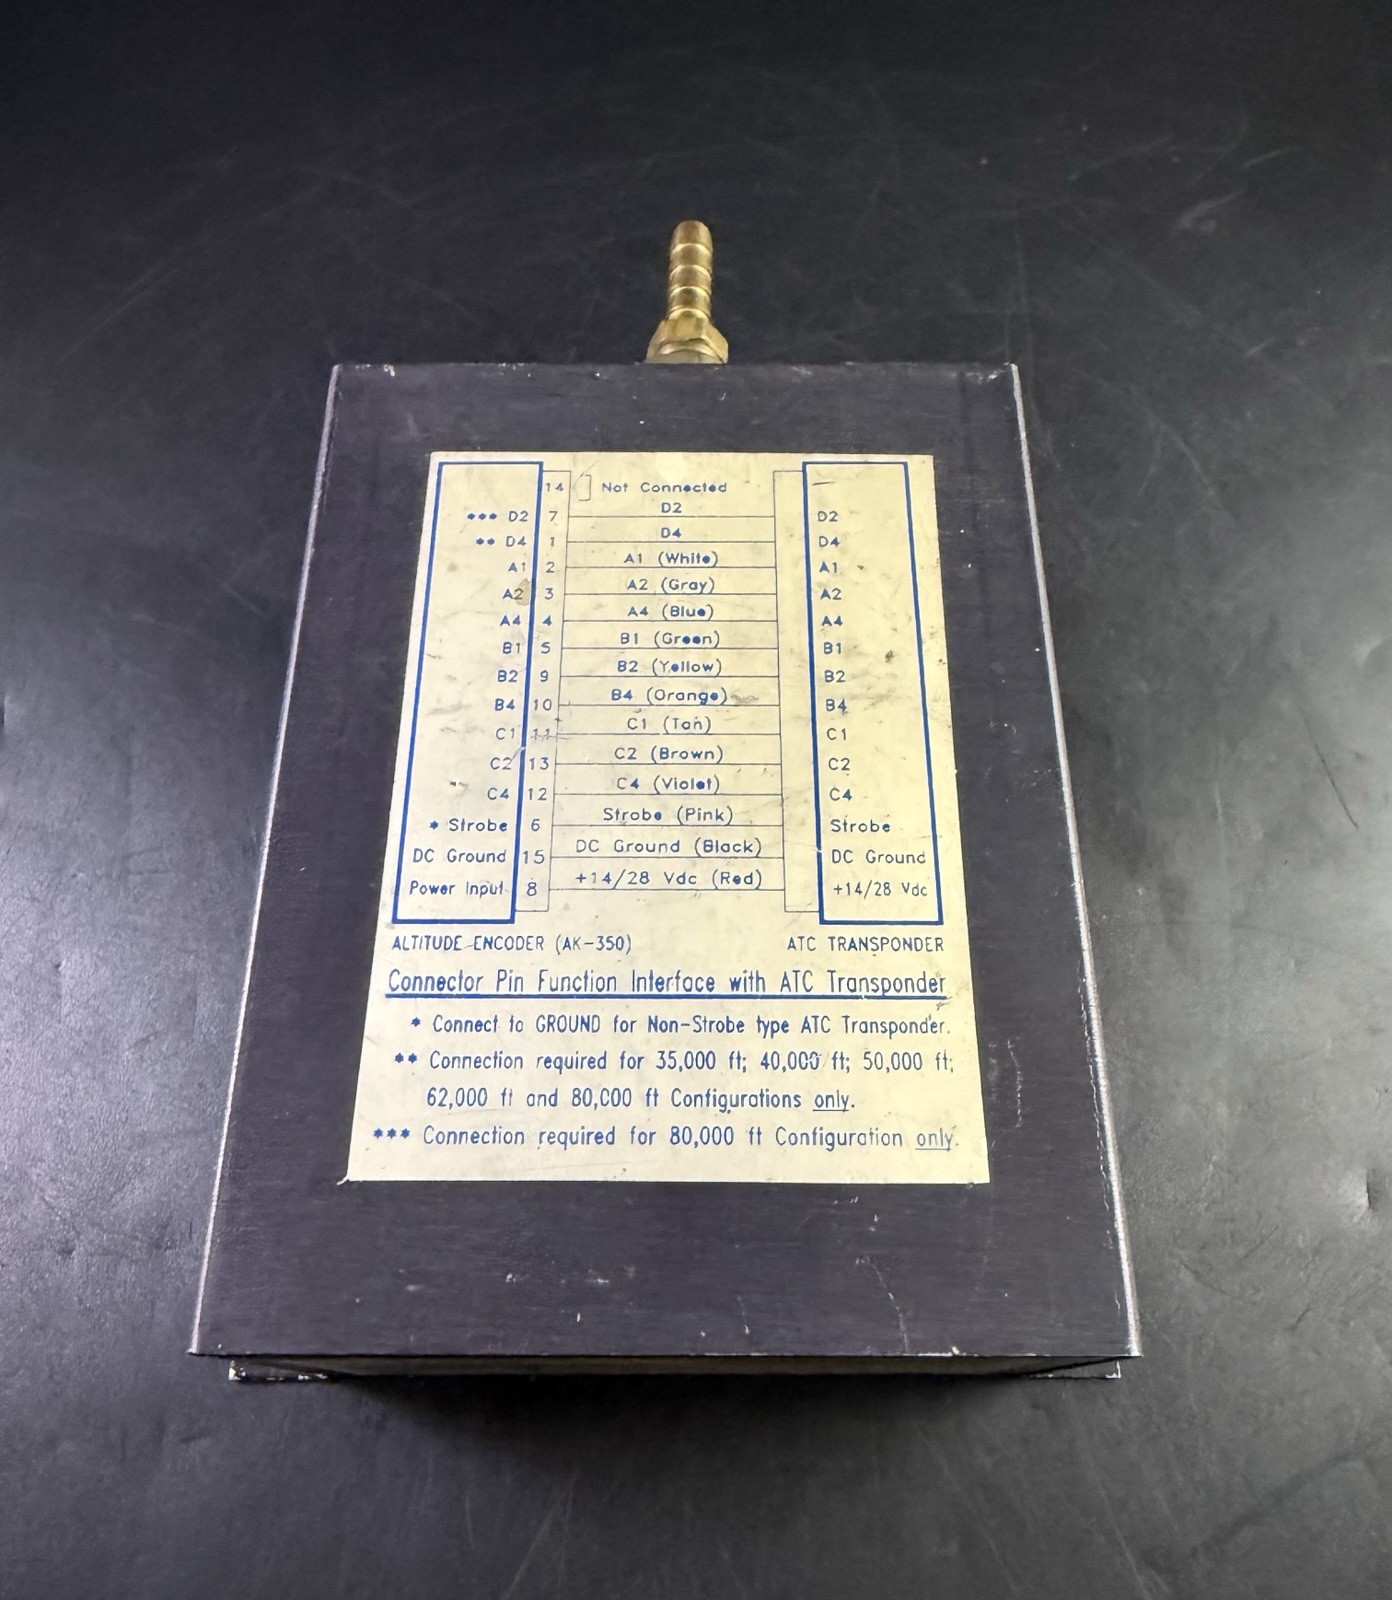 14 Not Connected
*** D2 7 D2 D2
** D4 1 D4 D4
A1 2 A1 (White) A1
A2 3 A2 (Gray) A2
A4 4 A4 (Blue) A4
B1 5 B1 (Green) B1
B2 9 B2 (Yellow) B2
B4 10 B4 (Orange) B4
C1 11 C1 (Tan) C1
C2 13 C2 (Brown) C2
C4 12 C4 (Violet) C4
* Strobe 6 Strobe (Pink) Strobe
DC Ground 15 DC Ground (Black) DC Ground
Power Input 8 +14/28 Vdc (Red) +14/28 Vdc
ALTITUDE ENCODER (AK-350) ATC TRANSPONDER
Connector Pin Function Interface with ATC Transponder
* Connect to GROUND for Non-Strobe type ATC Transponder.
** Connection required for 35,000 ft; 40,000 ft; 50,000 ft;
62,000 ft and 80,000 ft Configurations only.
*** Connection required for 80,000 ft Configuration only.